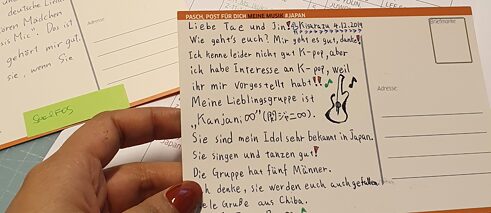 deutsche Lied
oren Mädchen
sis Mic". Das ist
gehört mir gut
sie, wenn Sie
PASCH, POST FÜR DICH MEINE MUSIK #JAPAN
Liebe Tae und Jin! @Kisarazu 4.12.2019
Wie geht's euch? Mir geht es gut, danke!
Ich kenne leider nicht gut K-pop, aber
ich habe Interesse an K-pop, weil
ihr mir vorgestellt habt!!
Meine Lieblingsgruppe ist
„Kanjani∞" (関ジャニ∞).
Sie sind mein Idol sehr bekannt in Japan.
Sie singen und tanzen gut!
Die Gruppe hat fünf Männer.
ch denke, sie werden euch auch gefallen.
iele Gruße aus Chiba.
Briefmarke
Adresse:
Adresse: